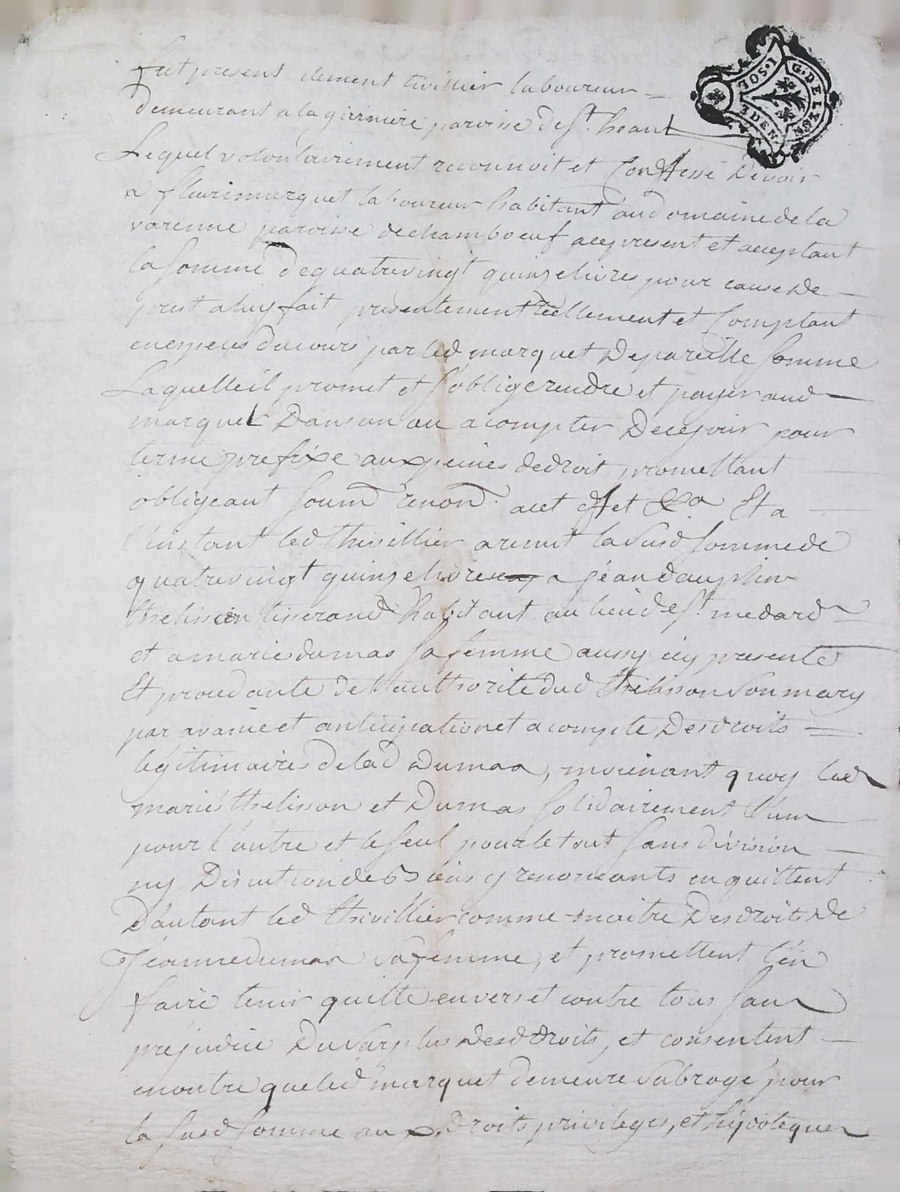 G. DE LYON
1. SOL.
2. DEN.
fut present clement tivillier laboureur
demeurant a la giriniere paroisse de St. heant
Lequel volontairement reconnoit et Confesse Devoir
a fleurimarquet laboureur habitant aud domaine de la
varenne paroisse de chambœuf acy present et acceptant
la somme de quatrevingt quinse livres pour cause de
prest a luy fait presentement réellement et Comptant
en especes du cours par led marquet De pareille somme
Laquelle il promet et s'oblige rendre et payer aud
marquet Dans un an a compter De ce jour pour
terme prefixe aux peines de droit promettant
obligeant soum renon. a cet effet &a Et a
l'instant led thivillier a remit la Susd somme de
quatrevingt quinse livres a jean dauphin
thelisson tisserand habitant au lieu de St. medard
et a marie dumas sa femme aussy icy presente
Et procedante de l'authorité dud thelisson Son mary
par avance et anticipation et a compte Des droits
legitimaires de lad Dumas, moienant quoy led
mariés thelisson et Dumas solidairement l'un
pour l'autre et le seul pour le tout sans division
ny Discution de biens y renonceants en quittent
D'autant led thivillier comme maitre Des droits de
Jeanne dumas sa femme, et promettent l'en
faire tenir quitte envers et contre tous sans
prejudice Du surplus desd droits, et consentent
en outre que led marquet demeure Subrogé pour
la susd somme aux Droits privileges, et hipoteques